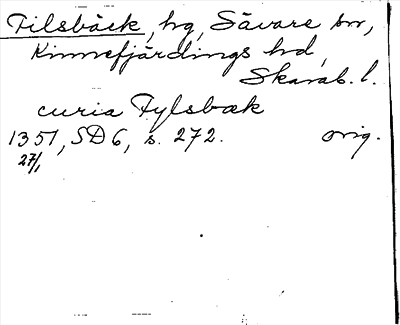 Filsbäck, hg, Sävare sn,
Kinnefjärdings hd,
Skarab. l.
curia Fylsbæk
1351, SD 6, s. 272. orig.
27/1